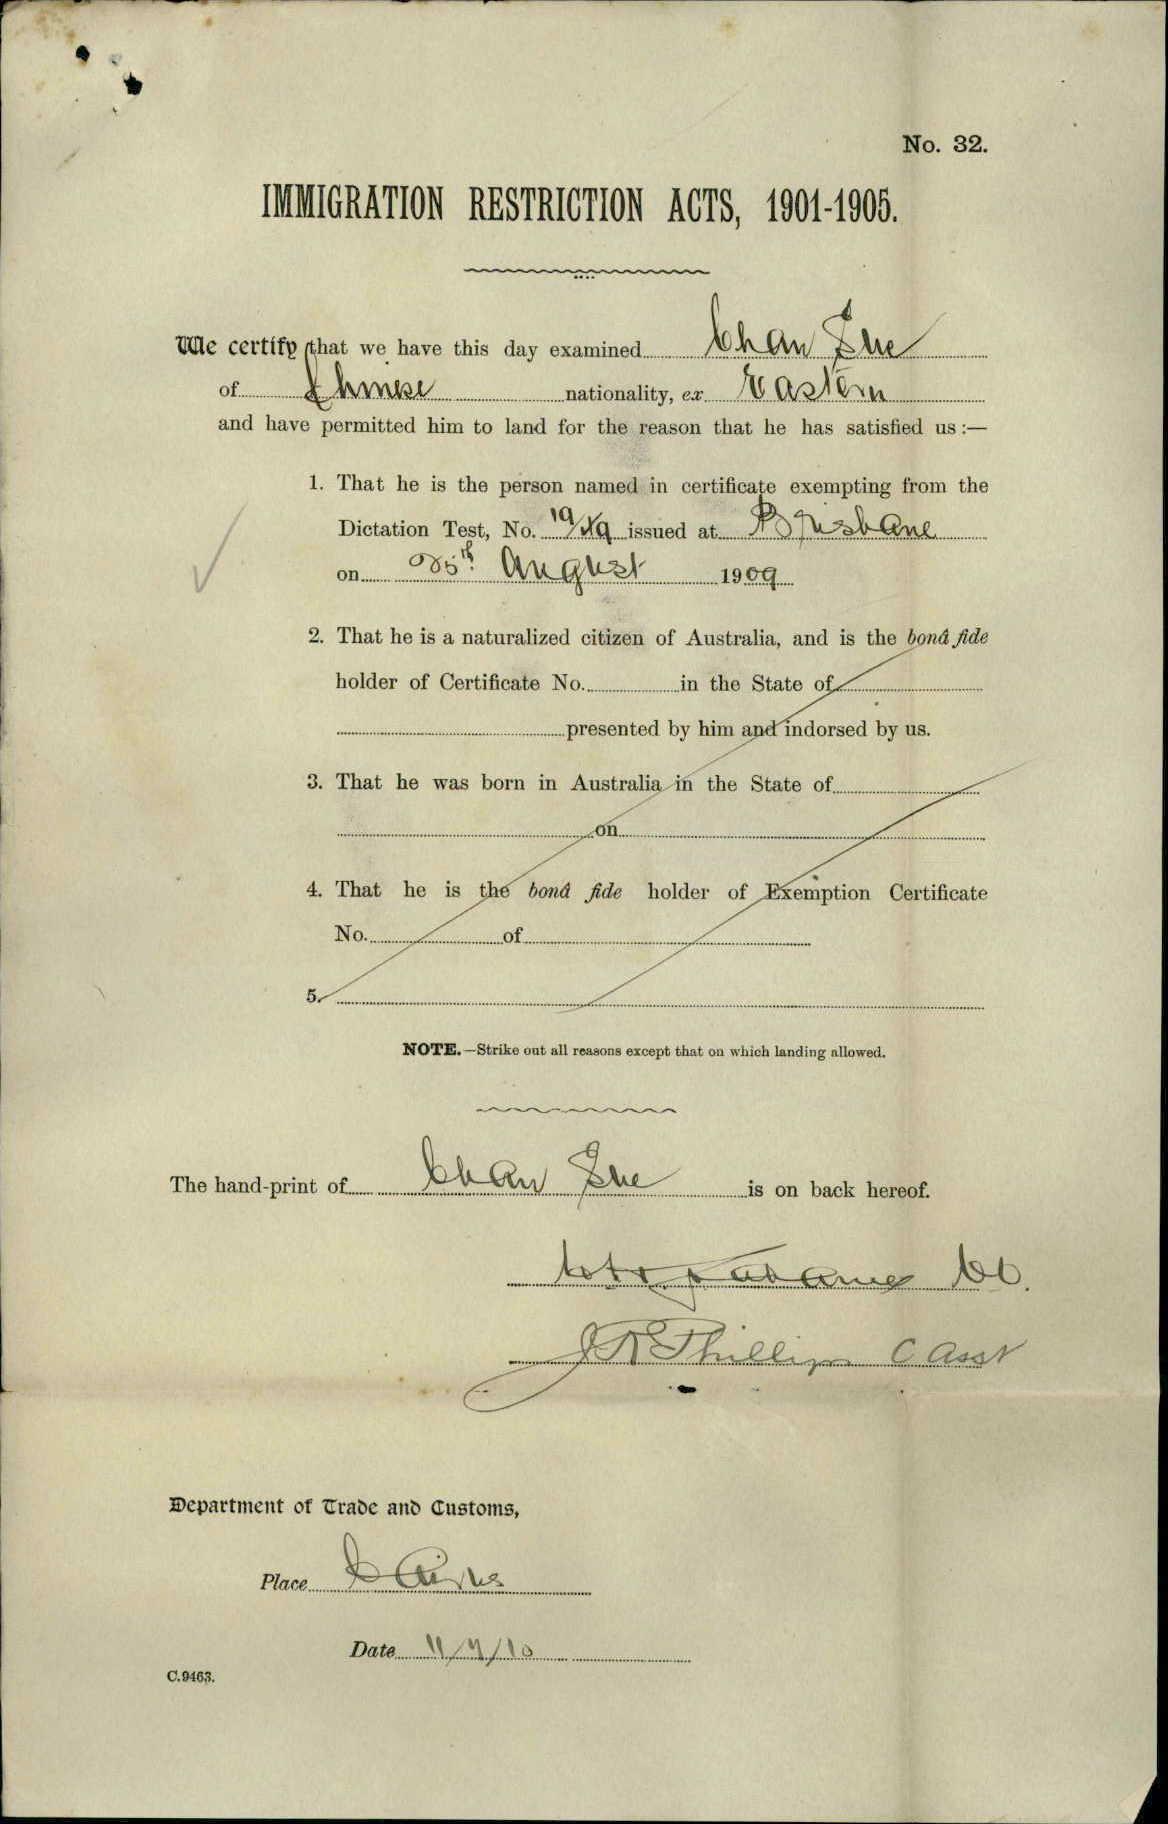 No. 32.
IMMIGRATION RESTRICTION ACTS, 1901-1905.
We certify that we have this day examined Chan Sue
of Chinese nationality, ex Eastern
and have permitted him to land for the reason that he has satisfied us :—
1. That he is the person named in certificate exempting from the
Dictation Test, No. issued at Brisbane
on 25th August 1909
2. That he is a naturalized citizen of Australia, and is the bonâ fide
holder of Certificate No. in the State of
presented by him and indorsed by us.
3. That he was born in Australia in the State of
on
4. That he is the bonâ fide holder of Exemption Certificate
No. of
5.
NOTE.—Strike out all reasons except that on which landing allowed.
The hand-print of Chan Sue is on back hereof.
Phillips C Asst
Department of Trade and Customs,
Place Cairns
Date
C.9463.